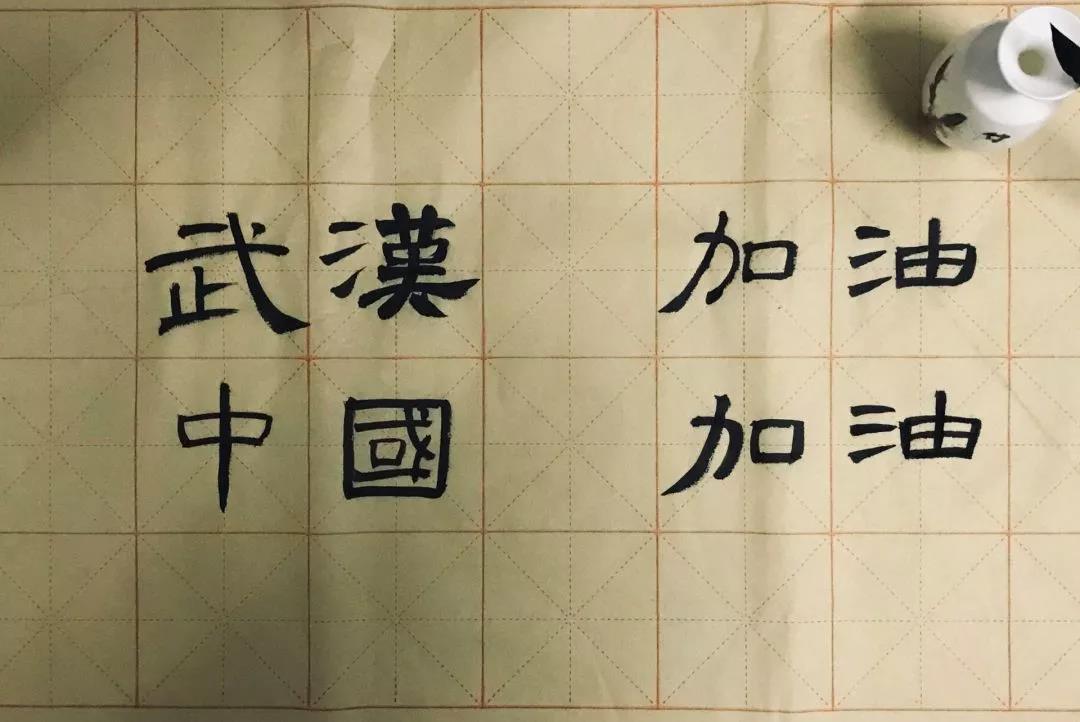 武漢 加油
中國 加油